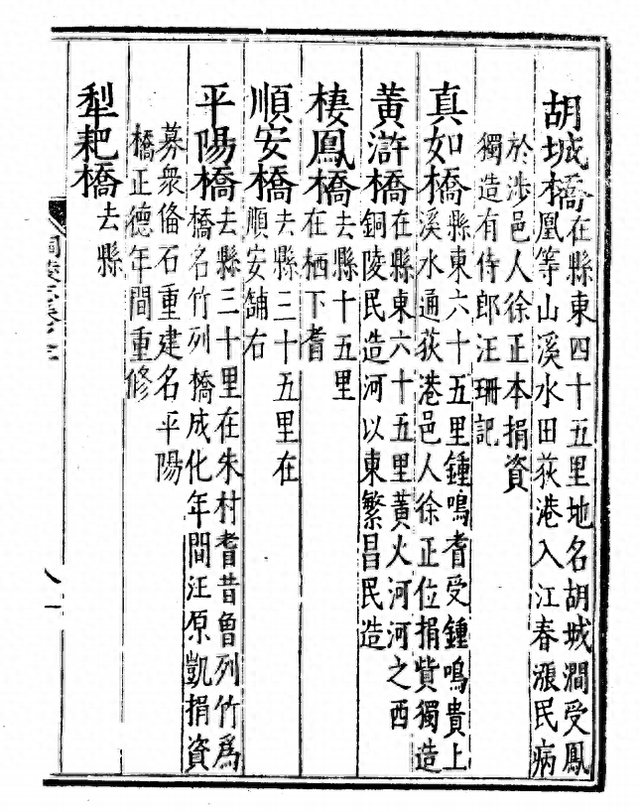 胡城橋在縣東四十五里地名胡城澗受鳳
凰等山溪水田荻港入江春漲民病
於涉邑人徐正本捐資
獨造有侍郎汪珊記
真如橋縣東六十五里鍾鳴耆受鍾鳴貴上
溪水通荻港邑人徐正位捐貲獨造
黃滸橋在縣東六十五里黃火河河之西
銅陵民造河以東繁昌民造
棲鳳橋去縣十五里
在栖下耆
順安橋去縣三十五里在
順安舖右
平陽橋去縣三十里在朱村耆昔魯列竹爲
橋名竹列橋成化年間汪原凱捐資
募衆備石重建名平陽
橋正德年間重修
犁耙橋去縣